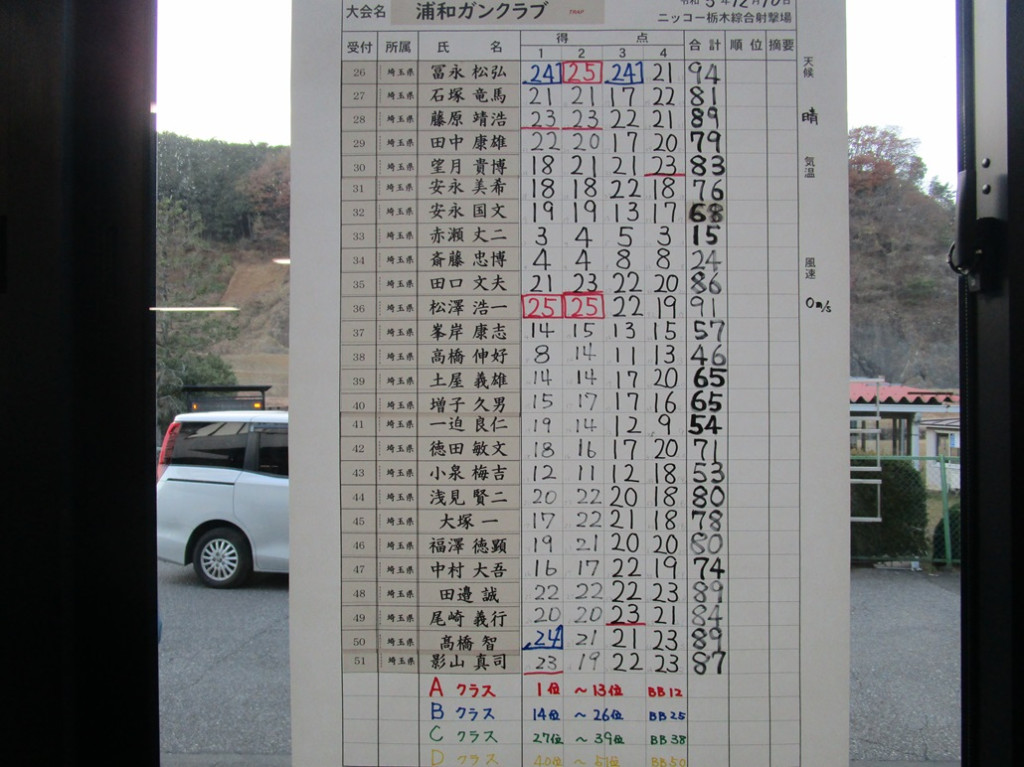 大会名 浦和ガンクラブ 令和5年12月10日
ニッコー栃木綜合射撃場
受付 所属 氏名 得点 合計 順位 摘要
1 2 3 4
26 埼玉県 冨永 松弘 24 25 24 21 94
27 埼玉県 石塚 竜馬 21 21 17 22 81
28 埼玉県 藤原 靖浩 23 23 22 21 89
29 埼玉県 田中 康雄 22 20 17 20 79
30 埼玉県 望月 貴博 18 21 21 23 83
31 埼玉県 安永 美希 18 18 22 18 76
32 埼玉県 安永 国文 19 19 13 17 68
33 埼玉県 赤瀬 丈二 3 4 5 3 15
34 埼玉県 斎藤 忠博 4 4 8 8 24
35 埼玉県 田口 文夫 21 23 22 20 86
36 埼玉県 松澤 浩一 25 25 22 19 91
37 埼玉県 峯岸 康志 14 15 13 15 57
38 埼玉県 高橋 伸好 8 14 11 13 46
39 埼玉県 土屋 義雄 14 14 17 20 65
40 埼玉県 増子 久男 15 17 17 16 65
41 埼玉県 一迫 良仁 19 14 12 9 54
42 埼玉県 徳田 敏文 18 16 17 20 71
43 埼玉県 小泉 梅吉 12 11 12 18 53
44 埼玉県 浅見 賢二 20 22 20 18 80
45 埼玉県 大塚 一 17 22 21 18 78
46 埼玉県 福澤 徳顕 19 21 20 20 80
47 埼玉県 中村 大吾 16 17 22 19 74
48 埼玉県 田邉 誠 22 22 22 23 89
49 埼玉県 尾崎 義行 20 20 23 21 84
50 埼玉県 高橋 智 24 21 21 23 89
51 埼玉県 影山 真司 23 19 22 23 87
A クラス 1位 ～ 13位 BB12
B クラス 14位 ～ 26位 BB25
C クラス 27位 ～ 39位 BB38
D クラス 40位 ～ 51位 BB50
天候
晴
気温
風速
0m/s